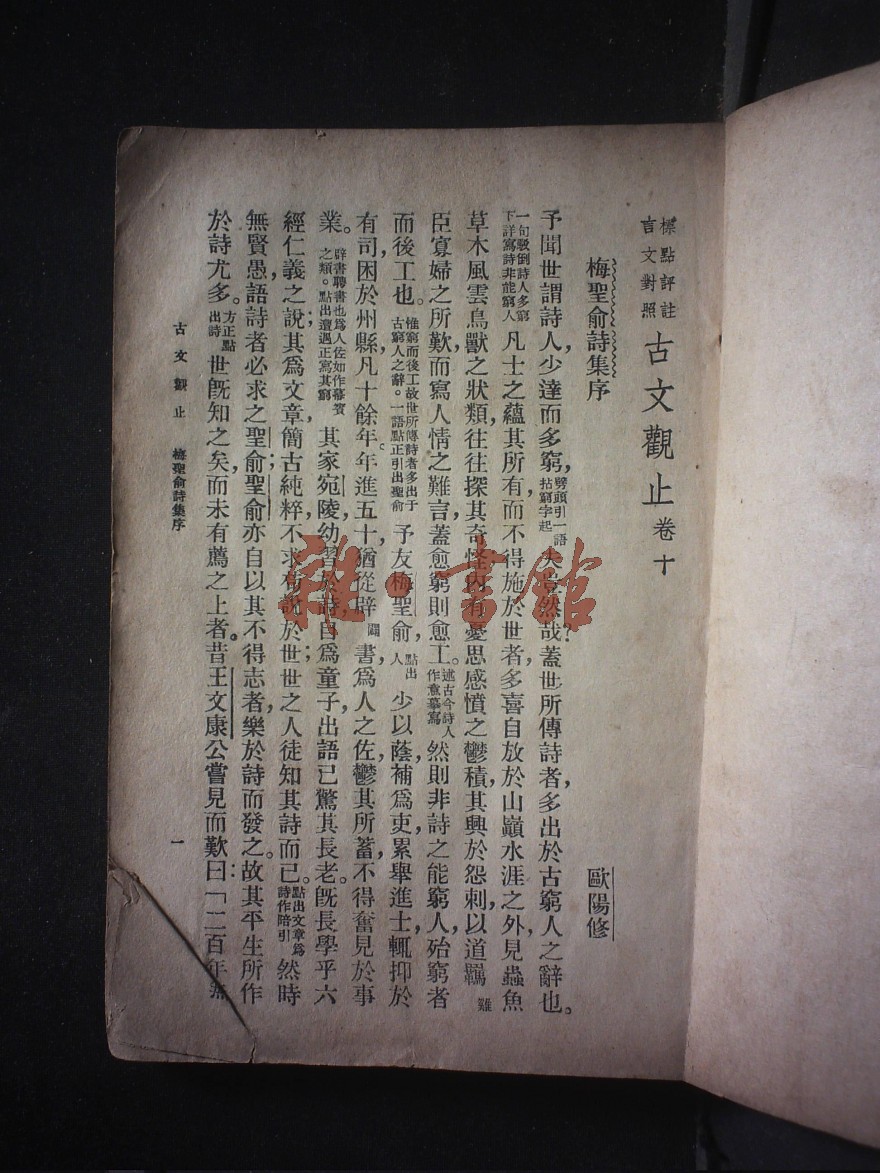 標點評註
言文對照
古文觀止 卷十
梅聖俞詩集序
歐陽修
予聞世謂詩人,少達而多窮,劈頭引一語拈窮字起夫豈然哉?蓋世所傳詩者,多出於古窮人之辭也。
一句駁倒詩人多窮下詳寫詩非能窮人凡士之蘊其所有,而不得施於世者,多喜自放於山巔水涯之外,見蟲魚
草木風雲鳥獸之狀類,往往探其奇怪,內有憂思感憤之鬱積,其興於怨刺,以道羈難
臣寡婦之所歎,而寫人情之難言,蓋愈窮則愈工。述古今詩人作意摹寫然則非詩之能窮人,殆窮者
而後工也。惟窮而後工故世所傳詩者多出于古窮人之辭。一語點正引出聖俞予友梅聖俞,點出人少以蔭補為吏,累舉進士,輒抑於
有司,困於州縣,凡十餘年。年進五十,猶從辟書,闢為人之佐,鬱其所蓄,不得奮見於事
業。辟書聘書也為人佐如作幕賓之類。點出遭遇正寫其窮其家宛陵,幼習於詩,自為童子,出語已驚其長老。既長,學乎六
經仁義之說,其為文章,簡古純粹,不求苟說於世;世之人徒知其詩而已。點出文章為詩作陪引然時
無賢愚,語詩者必求之聖俞;聖俞亦自以其不得志者,樂於詩而發之。故其平生所作,
於詩尤多。方正點出詩世既知之矣,而未有薦之上者。昔王文康公嘗見而歎曰:「二百年無
古文觀止 梅聖俞詩集序
一
雜·書館